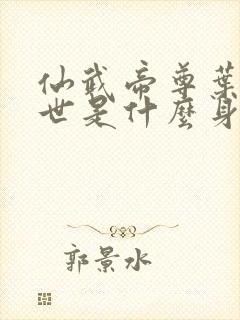 仙武帝尊葉
世是什麼身
郭景水